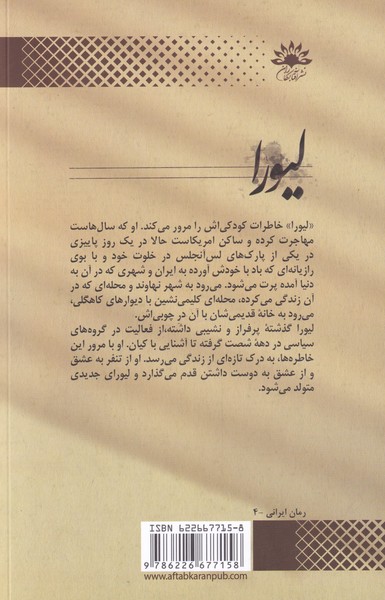 نشر آفتابکاران
لیورا
«لیورا» خاطرات کودکی‌اش را مرور می‌کند. او که سال‌هاست
مهاجرت کرده و ساکن امریکاست حالا در یک روز پاییزی
در یکی از پارک‌های لس‌آنجلس در خلوت خود و با بوی
رازیانه‌ای که باد با خودش آورده به ایران و شهری که در آن به
دنیا آمده پرت می‌شود. می‌رود به شهر نهاوند و محله‌ای که در
آن زندگی می‌کرده، محله‌ای کلیمی‌نشین با دیوارهای کاهگلی،
می‌رود به خانهٔ قدیمی‌شان با آن در چوبی‌اش.
لیورا گذشتهٔ پرفراز و نشیبی داشته،از فعالیت در گروه‌های
سیاسی در دههٔ شصت گرفته تا آشنایی با کیان. او با مرور این
خاطره‌ها، به درک تازه‌ای از زندگی می‌رسد. او از تنفر به عشق
و از عشق به دوست داشتن قدم می‌گذارد و لیورای جدیدی
متولد می‌شود.
رمان ایرانی -۴
ISBN 622667715-8
9 786226 677158
www.aftabkaranpub.com